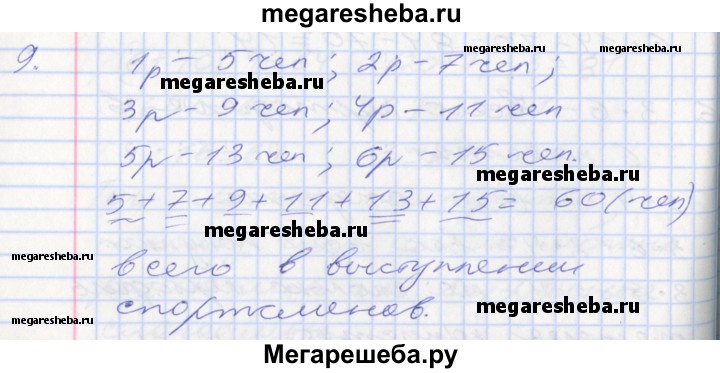 megaresheba.ru
9. 1р – 5 чел; 2р – 7 чел;
megaresheba.ru
megaresheba.ru
3р – 9 чел; 4р – 11 чел
megaresheba.ru
5р – 13 чел; 6р – 15 чел.
megaresheba.ru
5 + 7 + 9 + 11 + 13 + 15 = 60 (чел)
megaresheba.ru
megaresheba.ru
всего в выступлении
спортсменов.
megaresheba.ru
megaresheba.ru
Мегарешеба.ру